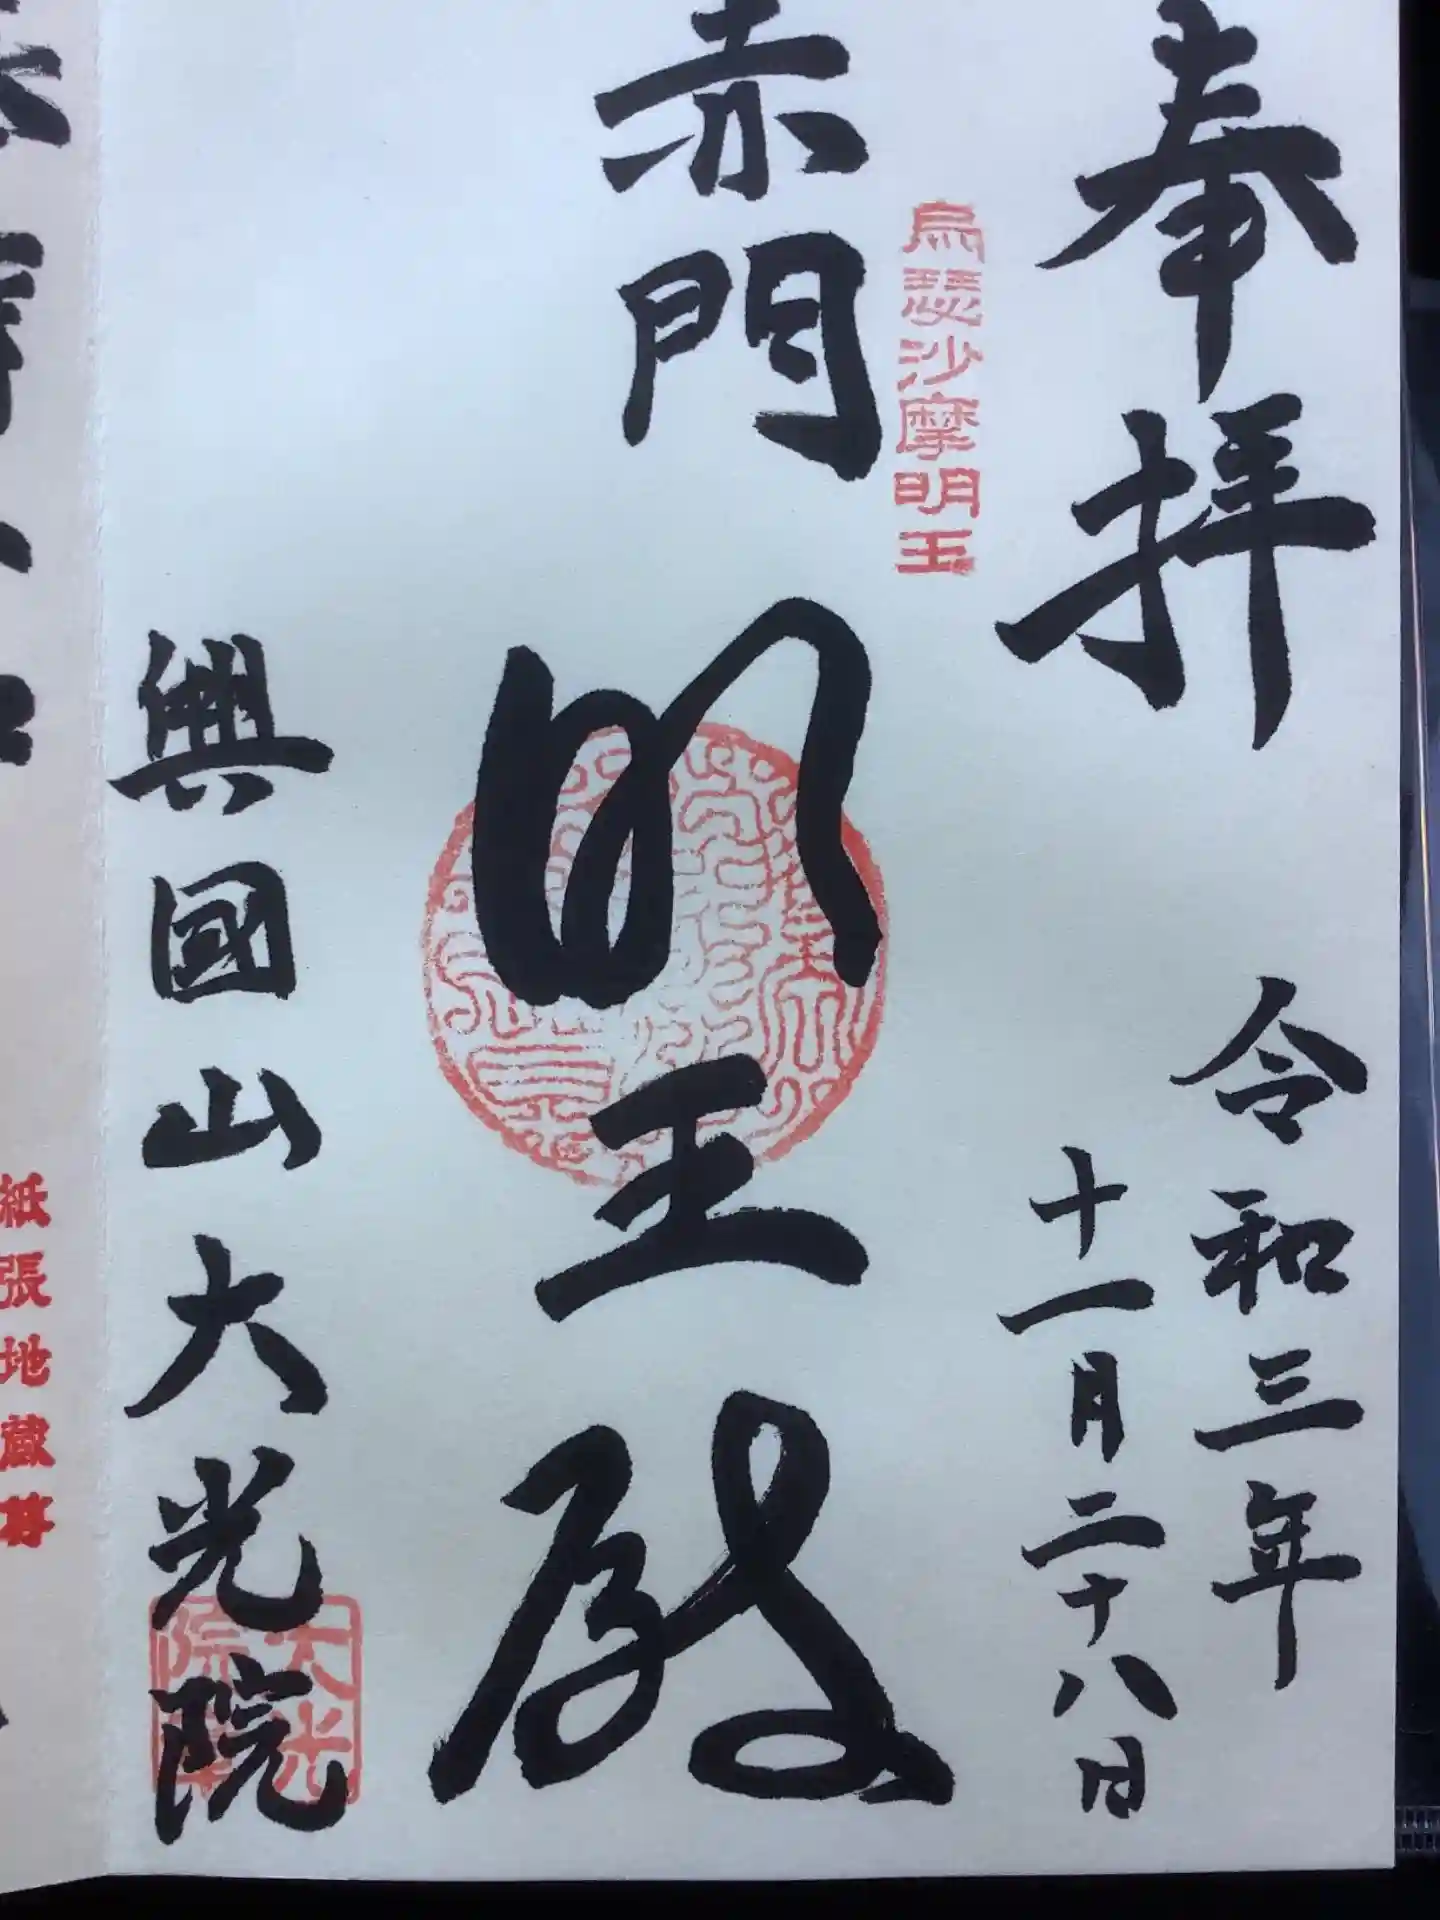 奉拝
令和三年
十一月二十八日
烏瑟沙摩明王
赤門
明王殿
興國山大光院
大光院
紙張地蔵尊